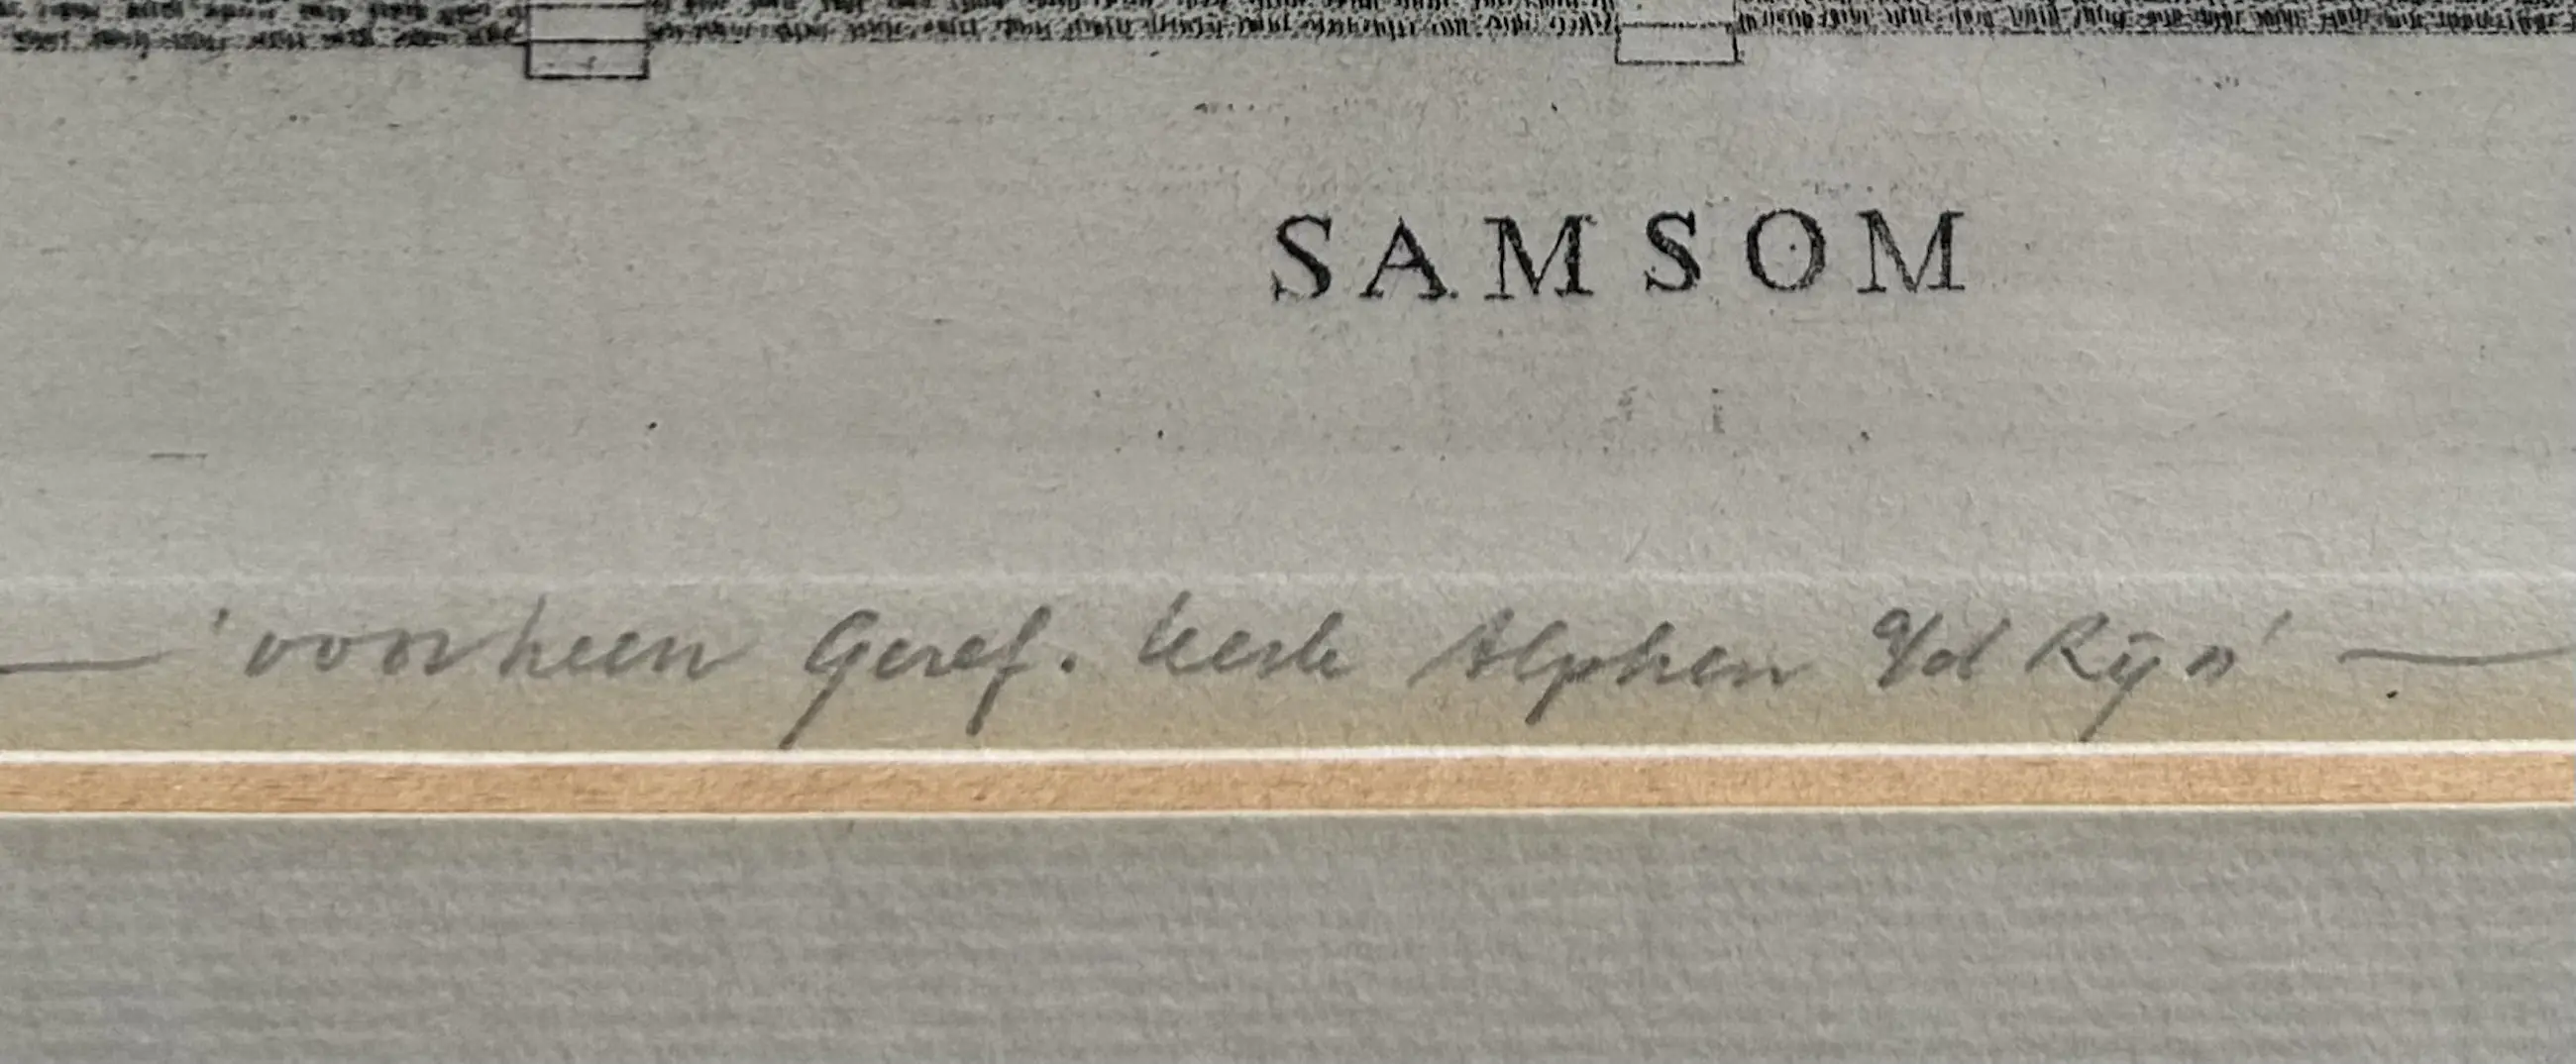 SAMSOM
'voorheen Geref. kerk Alphen a/d Rijn'